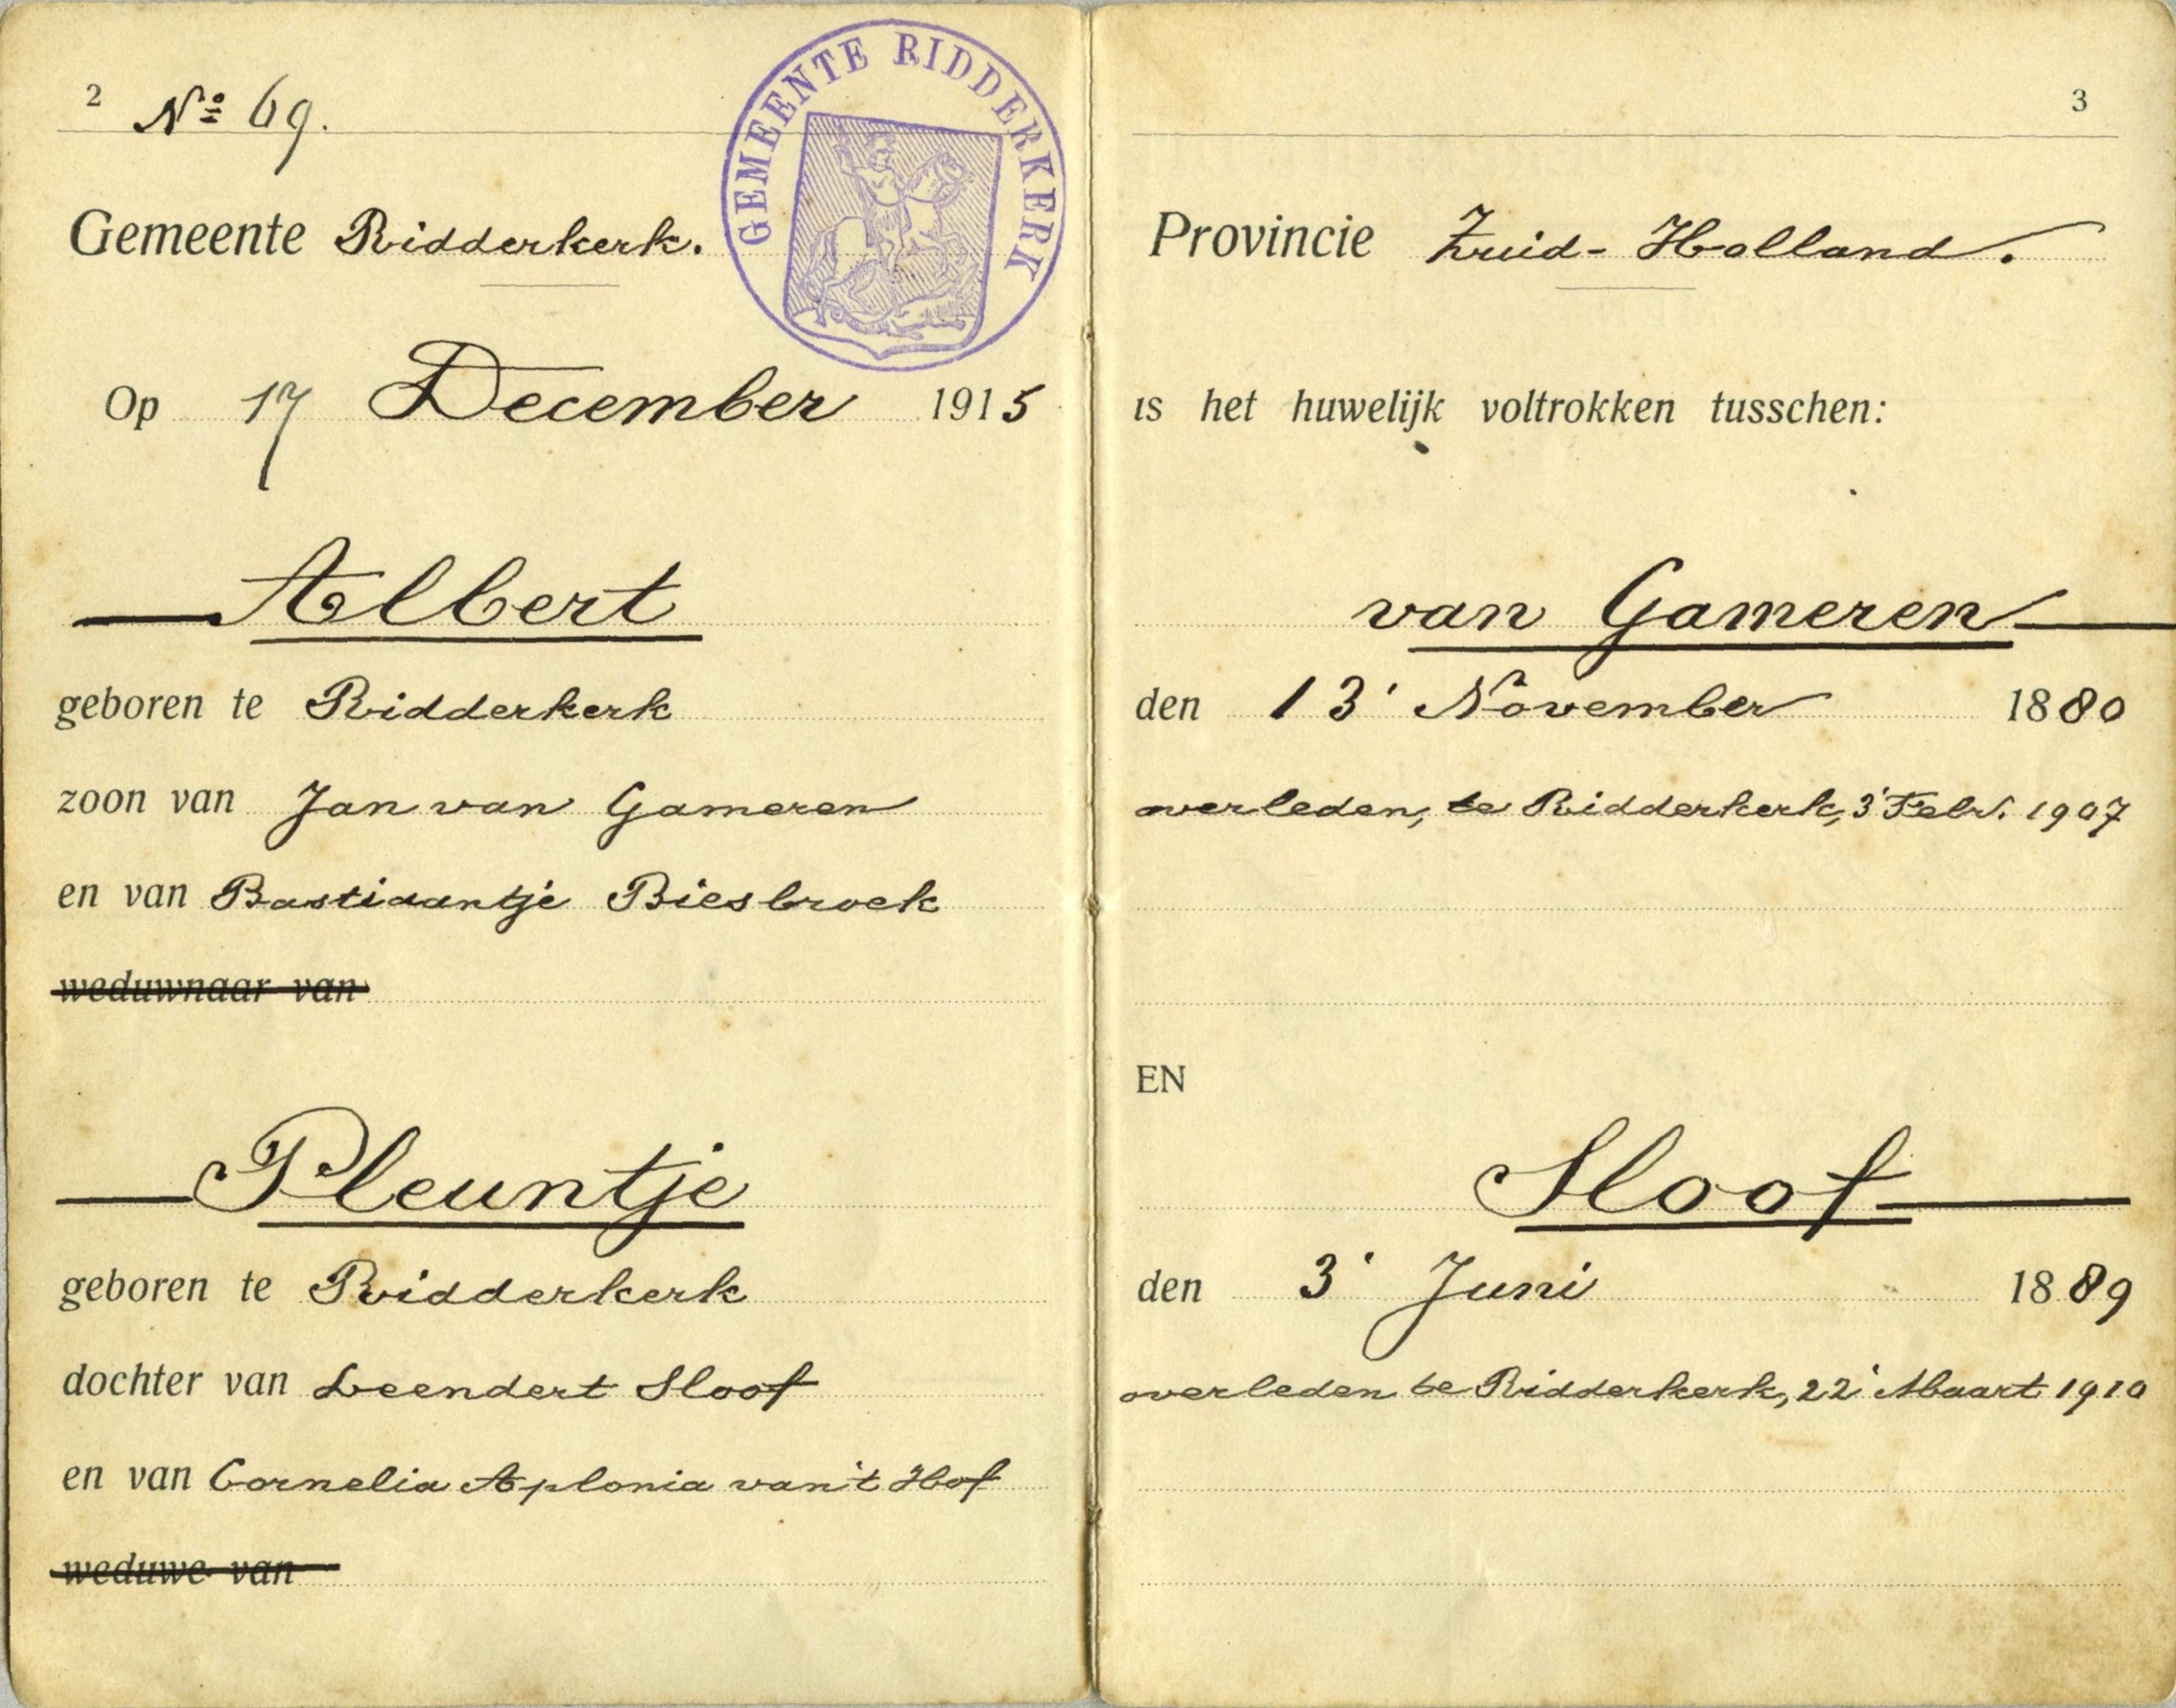 2 No 69.
GEMEENTE RIDDERKERK
Gemeente Ridderkerk.
Op 17 December 1915
Albert
geboren te Ridderkerk
zoon van Jan van Gameren
en van Bastiaantje Biesbroek
weduwnaar van
Pleuntje
geboren te Ridderkerk
dochter van Leendert Sloof
en van Cornelia Aplonia van 't Hof
weduwe van
3
Provincie Zuid-Holland.
is het huwelijk voltrokken tusschen:
van Gameren
den 13 November 1880
overleden, te Ridderkerk, 3 Febr. 1907
EN
Sloof
den 3 Juni 1889
overleden te Ridderkerk, 22 Maart 1910